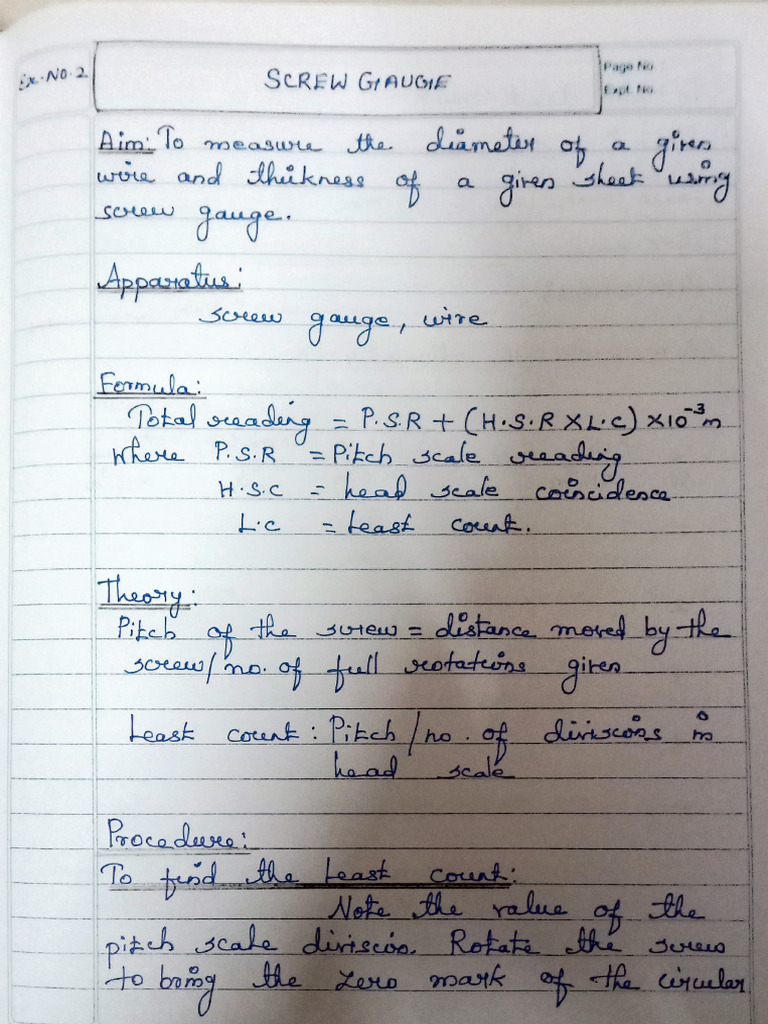 Ex.No.2
SCREW GAUGE
Page No
Expt. No.
Aim: To measure the diameter of a given
wire and thickness of a given sheet using
screw gauge.
Apparatus:
screw gauge, wire
Formula:
Total reading = P.S.R + (H.S.R X L.C) X10⁻³m
where P.S.R = Pitch scale reading
H.S.C = head scale coincidence
L.C = least count.
Theory:
Pitch of the screw = distance moved by the
screw/no. of full rotations given
Least count: Pitch/no. of divisions in
head scale
Procedure:
To find the least count:
Note the value of the
pitch scale division. Rotate the screw
to bring the zero mark of the circular